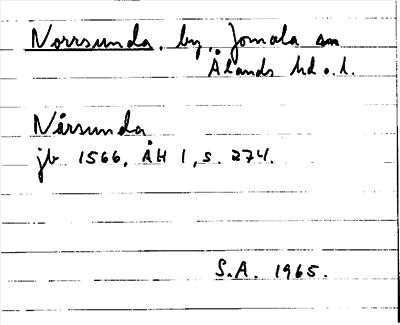 Norrsunda, by, Jomala sn
Ålands hd o. l.
Nårsunda
jb 1566, ÅH 1, s. 274.
S.A. 1965.